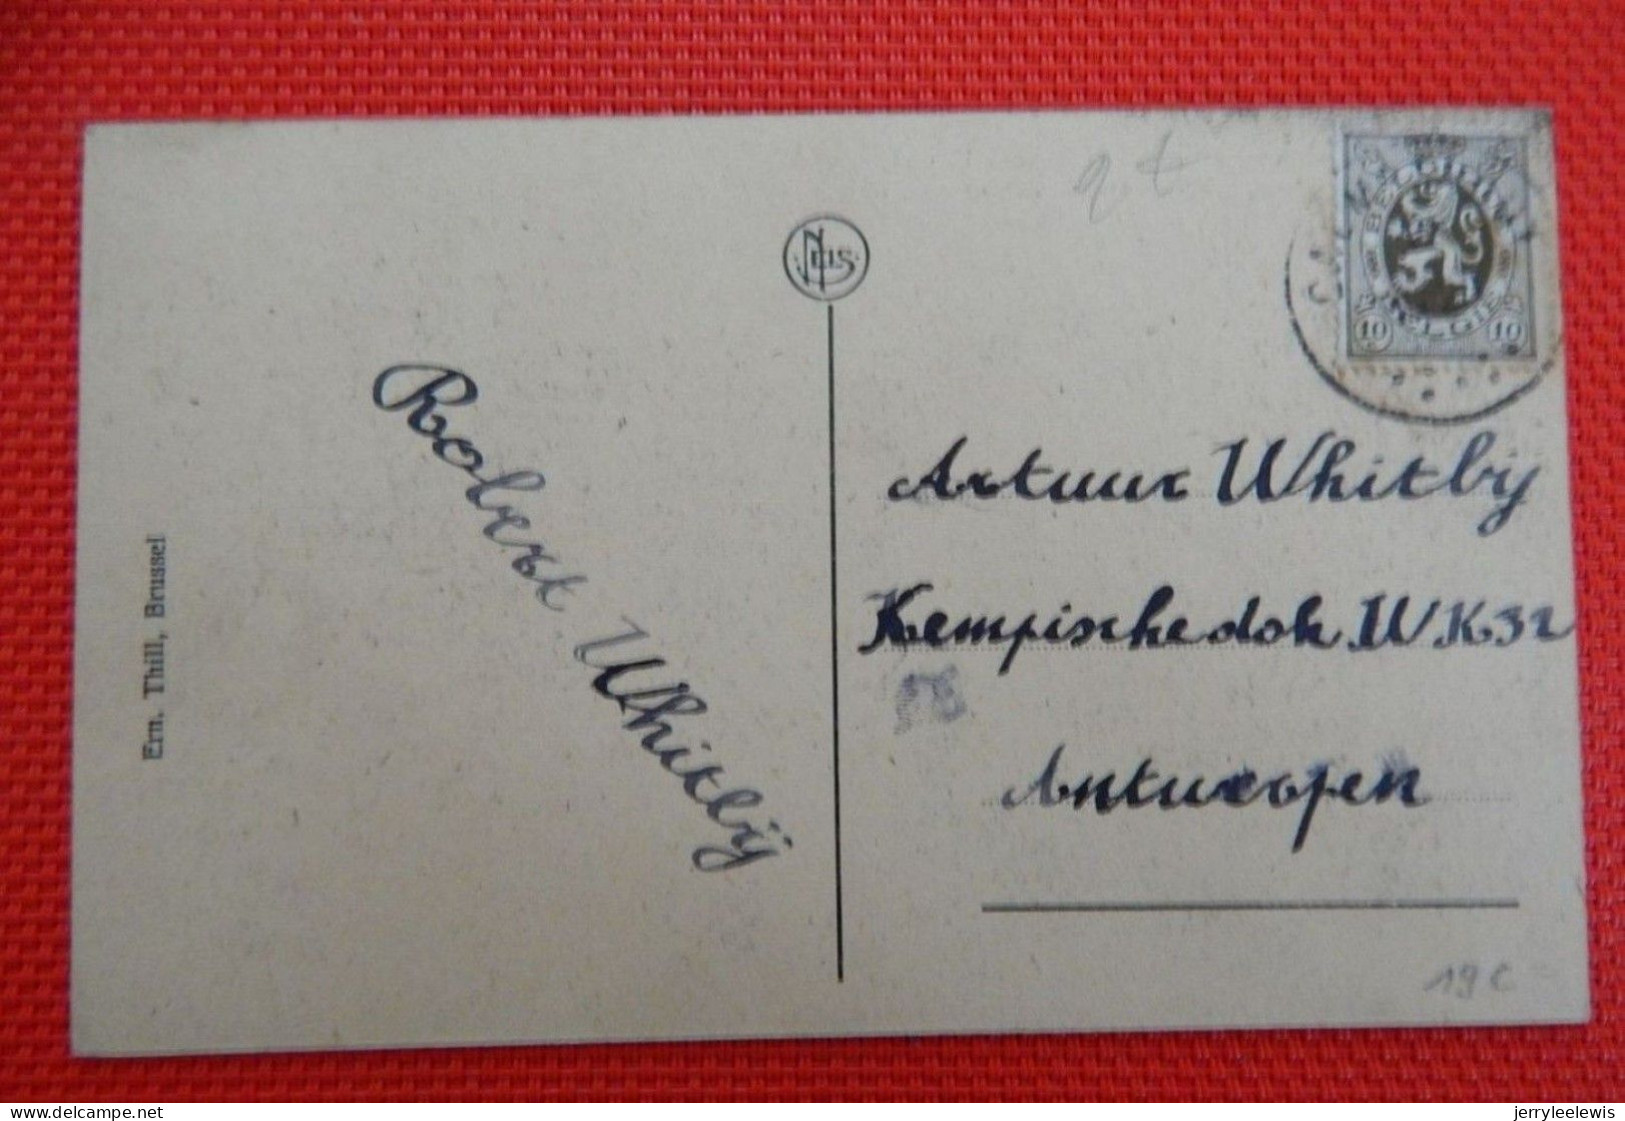 Ern. Thill, Brussel
Nels
Robert Whitbÿ
BELGIQUE
BELGIE
10 10
Artuur Whitbÿ
Kempischedok W.K32
Antwerpen
19c
www.delcampe.net
jerryleelewis